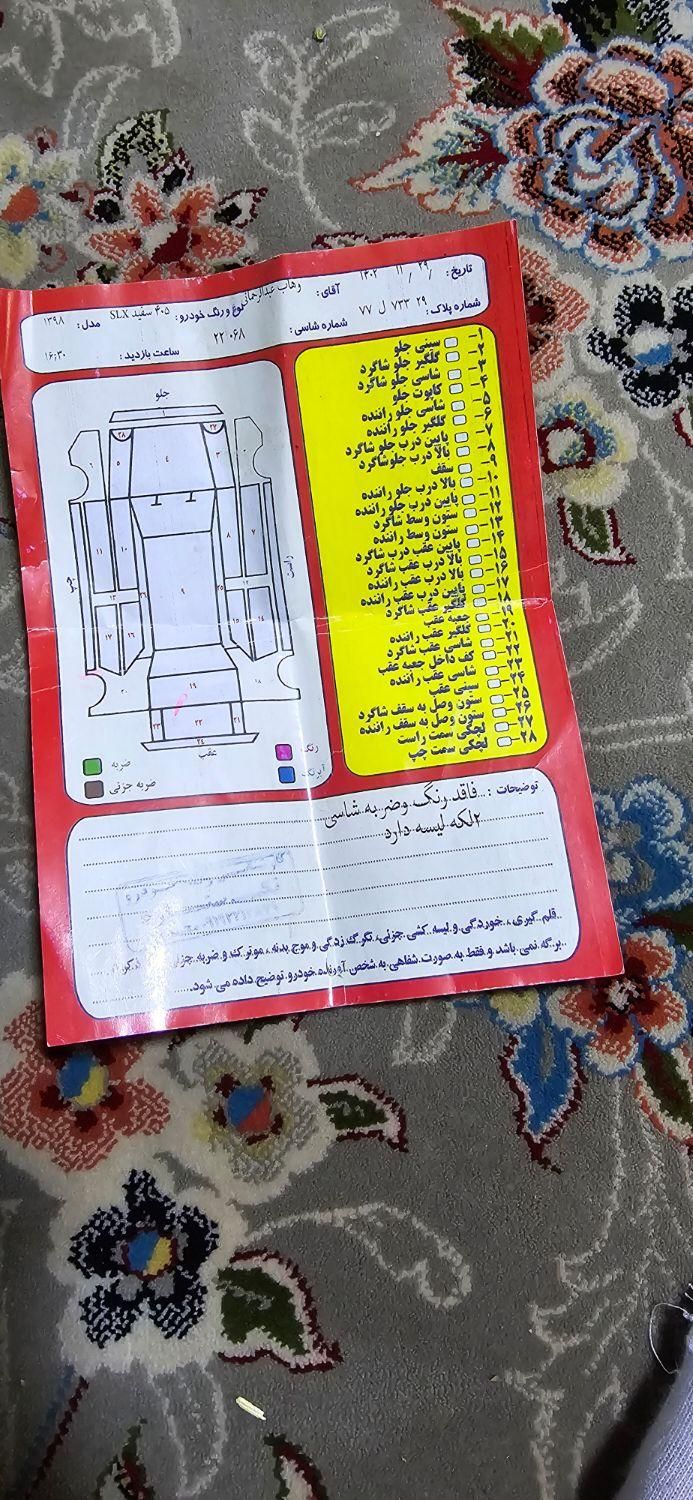 تاریخ: ۲۹ / ۱۱ / ۱۴۰۲
آقای: وهاب عبدالرحمانی
نوع و رنگ خودرو: ۴۰۵ سفید SLX
مدل: ۱۳۹۸
شماره پلاک: ۲۹ ۷۳۳ ل ۷۷
شماره شاسی: ۲۲۰۶۸
ساعت بازدید: ۱۶:۳۰
۱- سینی جلو
۲- گلگیر جلو شاگرد
۳- شاسی جلو شاگرد
۴- کاپوت جلو
۵- شاسی جلو راننده
۶- گلگیر جلو راننده
۷- پایین درب جلو شاگرد
۸- بالا درب جلوشاگرد
۹- سقف
۱۰- بالا درب جلو راننده
۱۱- پایین درب جلو راننده
۱۲- ستون وسط شاگرد
۱۳- ستون وسط راننده
۱۴- پایین عقب درب شاگرد
۱۵- بالا درب عقب شاگرد
۱۶- بالا درب عقب راننده
۱۷- پایین درب عقب راننده
۱۸- گلگیر عقب شاگرد
۱۹- جعبه عقب
۲۰- گلگیر عقب راننده
۲۱- شاسی عقب شاگرد
۲۲- کف داخل جعبه عقب
۲۳- شاسی عقب راننده
۲۴- سینی عقب
۲۵- ستون وصل به سقف شاگرد
۲۶- ستون وصل به سقف راننده
۲۷- لچکی سمت راست
۲۸- لچکی سمت چپ
جلو
۱
۲۸ ۲۷
۶ ۵ ۴ ۳ ۲
۱۱ ۱۰ ۸ ۷
چپ
راست
۹
۱۳ ۲۶ ۲۵ ۱۲
۱۷ ۱۶ ۱۵ ۱۴
۲۰ ۱۹ ۱۸
۲۳ ۲۲ ۲۱
۲۴
عقب
رنگ
ضربه
آبرنگ
ضربه جزئی
توضیحات: فاقد رنگ وضربه شاسی
۲لکه لیسه دارد
قلم گیری، خوردگی و لیسه کشی جزئی، تگرگ زدگی و موج بدنه، موترک و ضربه
برگه نمی باشد و فقط به صورت شفاهی به شخص آورنده خودرو توضیح داده می شود.